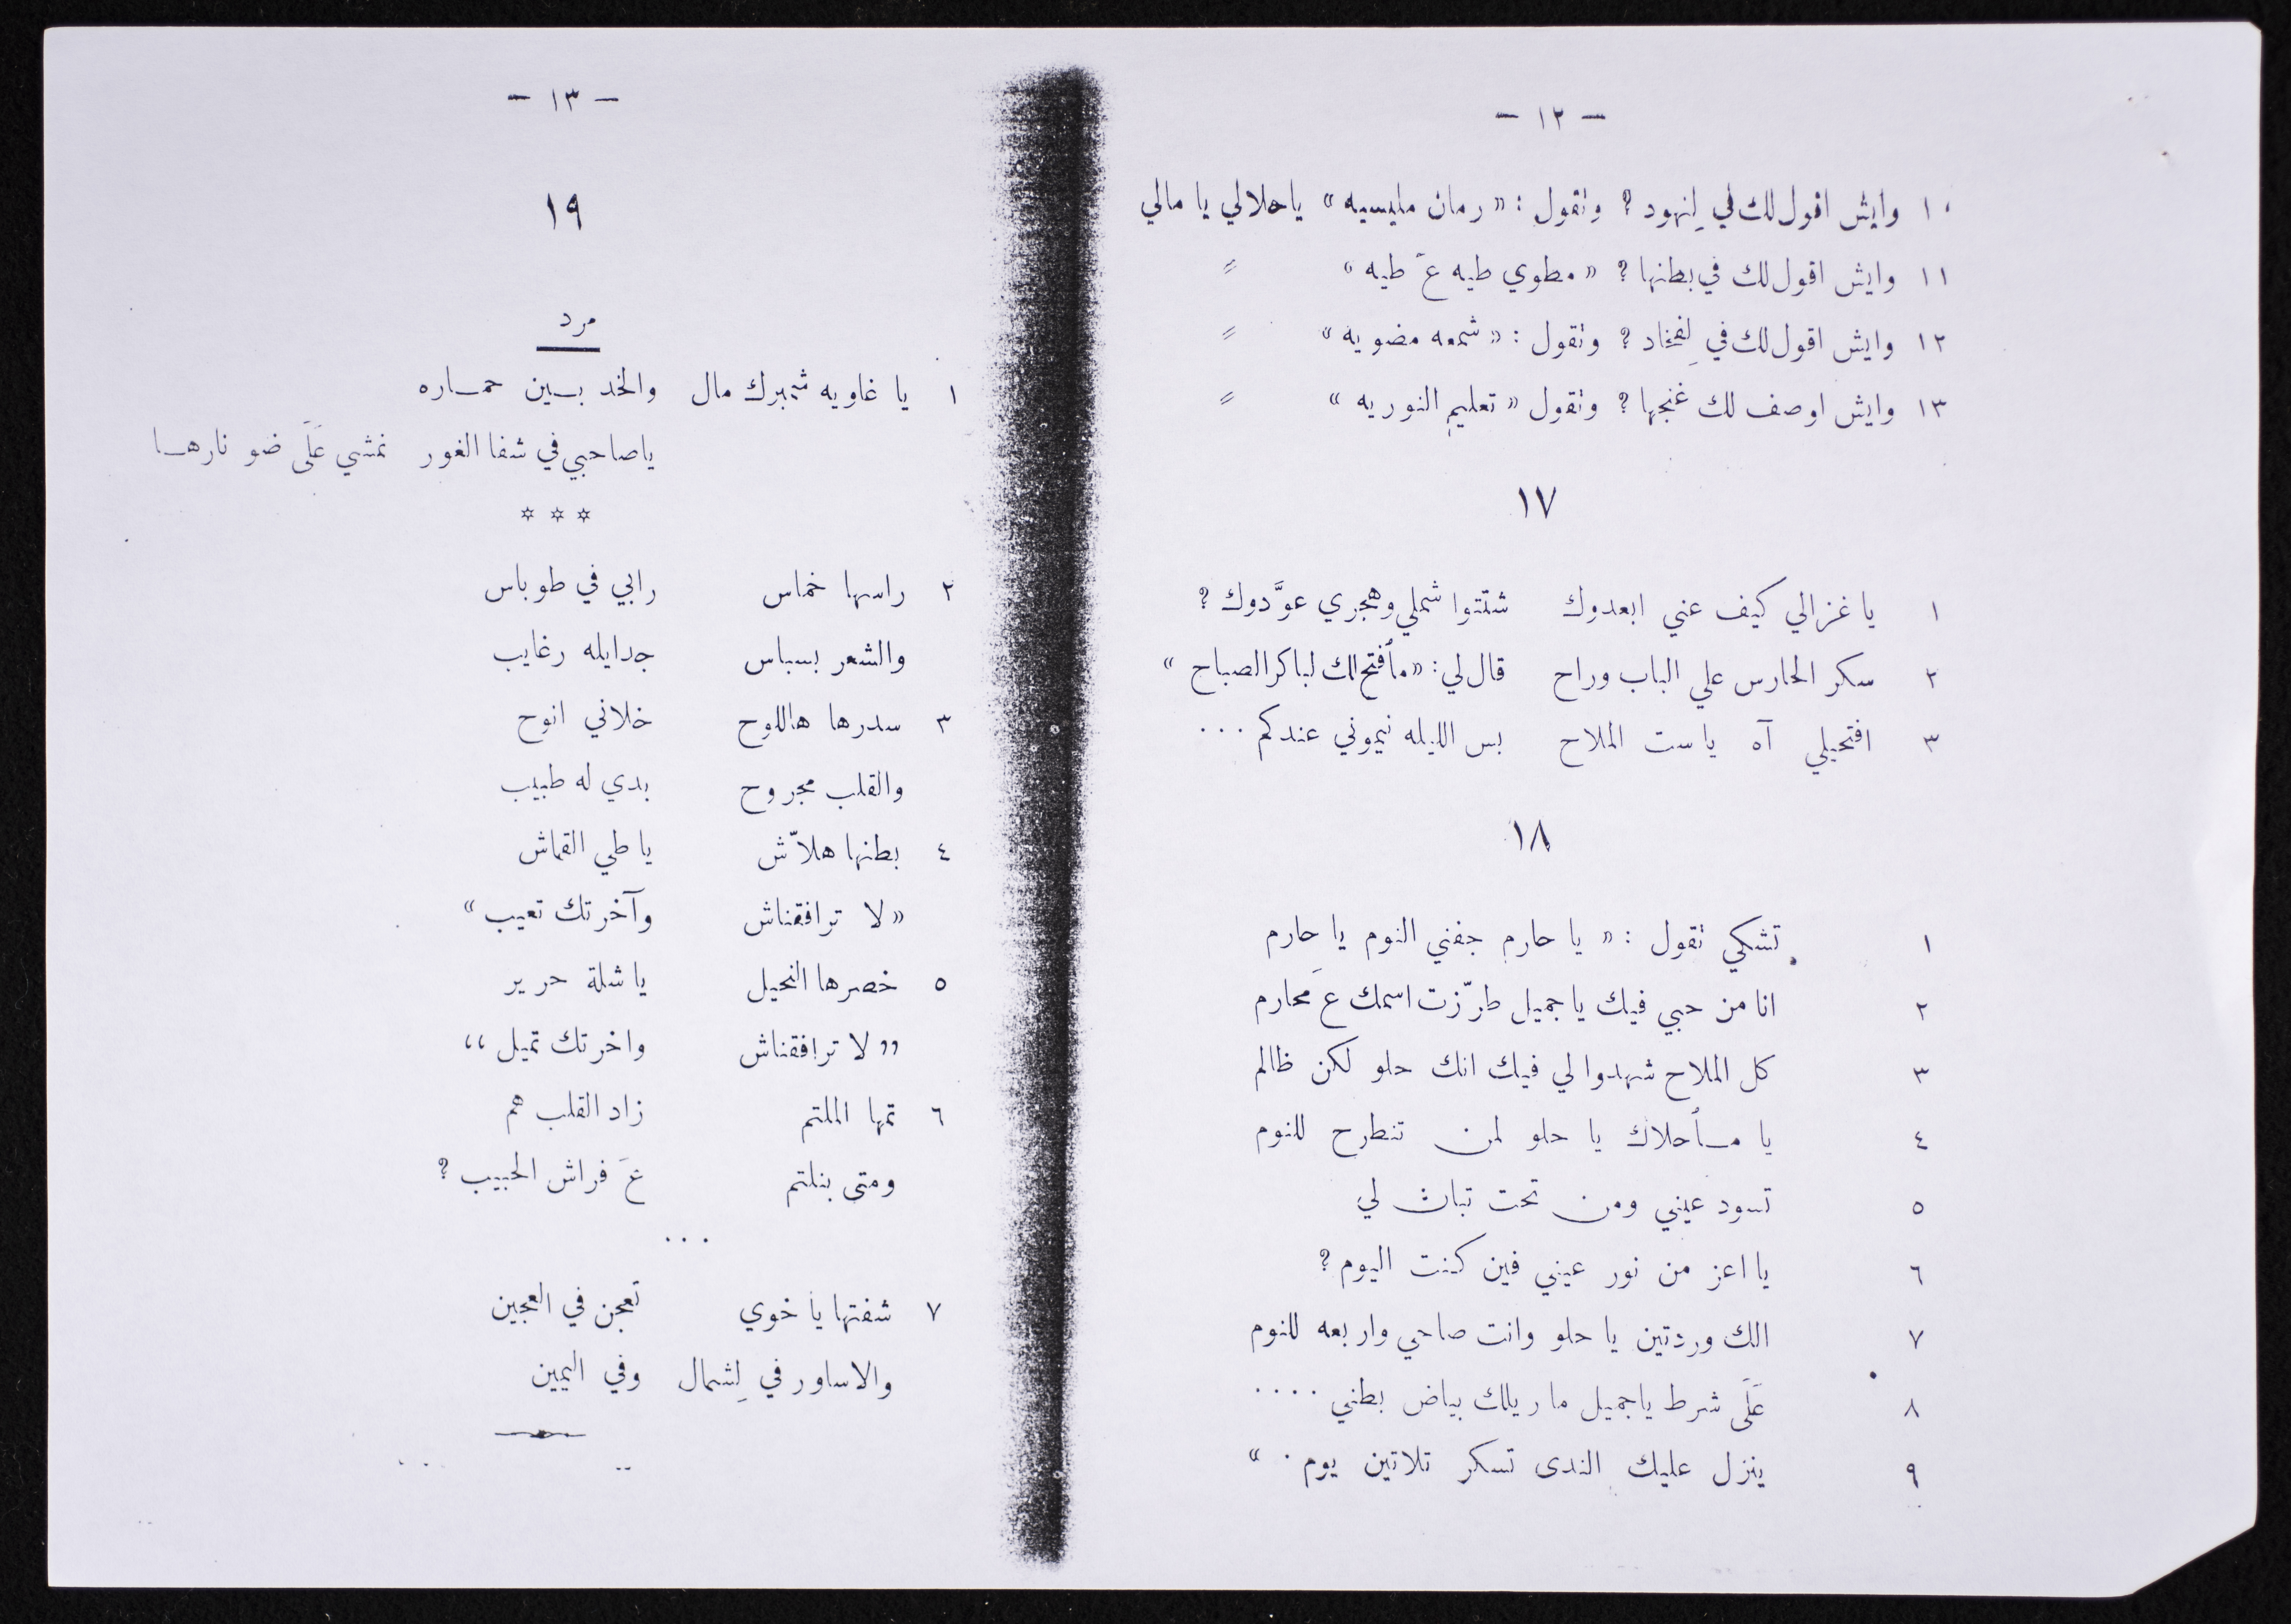 - ١٢ -
١٠ وايش اقول لك في لِنهود ؟ وتقول : « رمان مليسيه » ياحلالي يا مالي
١١ وايش اقول لك في بطنها ؟ « مطوي طيه عَ طيه » =
١٢ وايش اقول لك في لِفخاد ؟ وتقول : « شمعه مضويه » =
١٣ وايش اوصف لك غنجها ؟ وتقول « تعليم النوريه » =
١٧
١ يا غزالي كيف عني ابعدوك شتتوا شملي وهجري عوَّدوك ؟
٢ سكر الحارس علي الباب وراح قال لي : « مأفتح لك لباكر الصباح »
٣ افتحيلي آه يا ست الملاح بس الليله نيموني عندكم ...
١٨
١ تشكي تقول : « يا حارم جفني النوم يا حارم
٢ انا من حبي فيك يا جميل طرّزت اسمك عَ محارم
٣ كل الملاح شهدوا لي فيك انك حلو لكن ظالم
٤ يا مأحلاك يا حلو لمن تنطرح للنوم
٥ تسود عيني ومن تحت تبان لي
٦ يا اعز من نور عيني فين كنت اليوم ؟
٧ الك وردتين يا حلو وانت صاحي واربعه للنوم
٨ عَلَى شرط ياجميل ما ريلك بياض بطني ....
٩ ينزل عليك الندى تسكر تلاتين يوم . »
- ١٣ -
١٩
مرد
١ يا غاويه شمبرك مال والخد بين حماره
ياصاحبي في شفا الغور نمشي عَلَى ضو نارها
* * *
٢ راسها خماس رابي في طوباس
والشعر بسباس جدايله رغايب
٣ سدرها هاللوح خلاني انوح
والقلب مجروح بدي له طبيب
٤ بطنها هلاّش يا طي القماش
« لا ترافقناش وآخرتك تعيب »
٥ خصرها النحيل يا شلة حرير
,, لا ترافقناش واخرتك تميل ،،
٦ تمها الملتم زاد القلب هم
ومتى بنلتم عَ فراش الحبيب ؟
...
٧ شفتها يا خوي تعجن في العجين
والاساور في لِشمال وفي اليمين